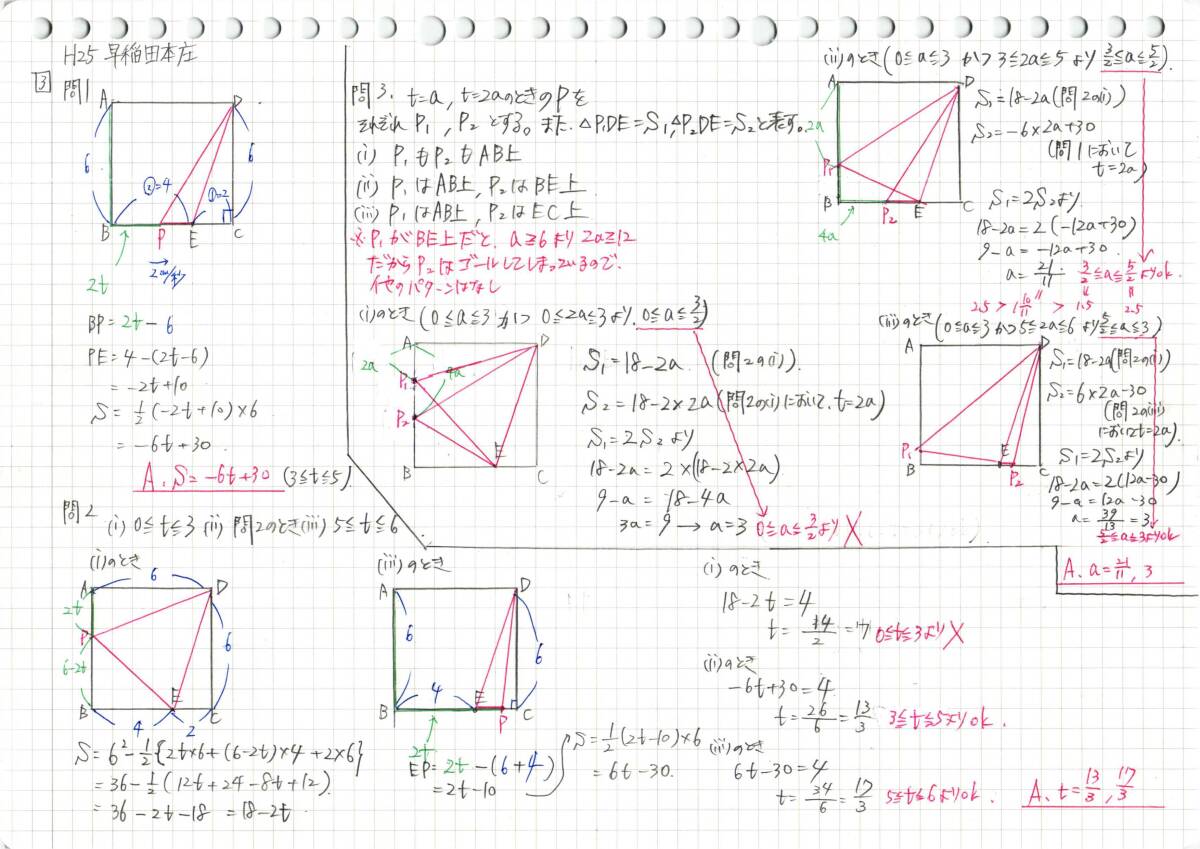 H25 早稲田本庄
3
問1
A
D
6
②=4
①=2
6
B
P
E
C
2cm/秒
2t
BP=2t-6
PE=4-(2t-6)
=-2t+10
S=1/2(-2t+10)×6
=-6t+30
A. S=-6t+30 (3≦t≦5)
問2
(i) 0≦t≦3 (ii) 問2のとき (iii) 5≦t≦6
(i)のとき
A
6
D
2t
P
6-2t
6
B
E
C
4
2
S=6²-1/2{2t×6+(6-2t)×4+2×6}
=36-1/2(12t+24-8t+12)
=36-2t-18 =18-2t
(iii)のとき
A
D
6
6
4
E
B
P
C
2t
EP=2t-(6+4)
=2t-10
S=1/2(2t-10)×6
=6t-30.
(i)のとき
18-2t=4
t=14/2=7 0≦t≦3より✗
(ii)のとき
-6t+30=4
t=26/6=13/3 3≦t≦5よりok.
(iii)のとき
6t-30=4
t=34/6=17/3 5≦t≦6よりok.
A. t=13/3, 17/3
問3. t=a, t=2aのときのPを
それぞれP₁, P₂とする。また、△P₁DE=S₁, △P₂DE=S₂と表す。
(i) P₁もP₂もAB上
(ii) P₁はAB上, P₂はBE上
(iii) P₁はAB上, P₂はEC上
※P₁がBE上だと、a≧6より2a≧12
だからP₂はゴールしてしまっているので、
他のパターンはなし
(i)のとき (0≦a≦3かつ0≦2a≦3より、0≦a≦3/2)
A
D
2a
P₁
4a
P₂
E
B
C
S₁=18-2a (問2の(i)).
S₂=18-2×2a (問2の(i)において、t=2a)
S₁=2S₂より
18-2a=2×(18-2×2a)
9-a=18-4a
3a=9→a=3 0≦a≦3/2より✗
(ii)のとき (0≦a≦3かつ3≦2a≦5より3/2≦a≦5/2).
A
D
2a
P₁
B
P₂
E
C
4a
S₁=18-2a (問2の(i))
S₂=-6×2a+30
(問1において
t=2a)
S₁=2S₂より
18-2a=2(-12a+30)
9-a=-12a+30.
a=21/11. 3/2≦a≦5/2よりok.
2.5>1 10/11>1.5
2.5
(iii)のとき (0≦a≦3かつ5≦2a≦6より5/2≦a≦3)
A
D
P₁
E
B
P₂
C
S₁=18-2a (問2の(i))
S₂=6×2a-30
(問2の(iii)
においてt=2a)
S₁=2S₂より
18-2a=2(12a-30)
9-a=12a-30
a=39/13=3
5/2≦a≦3よりok
A. a=21/11, 3